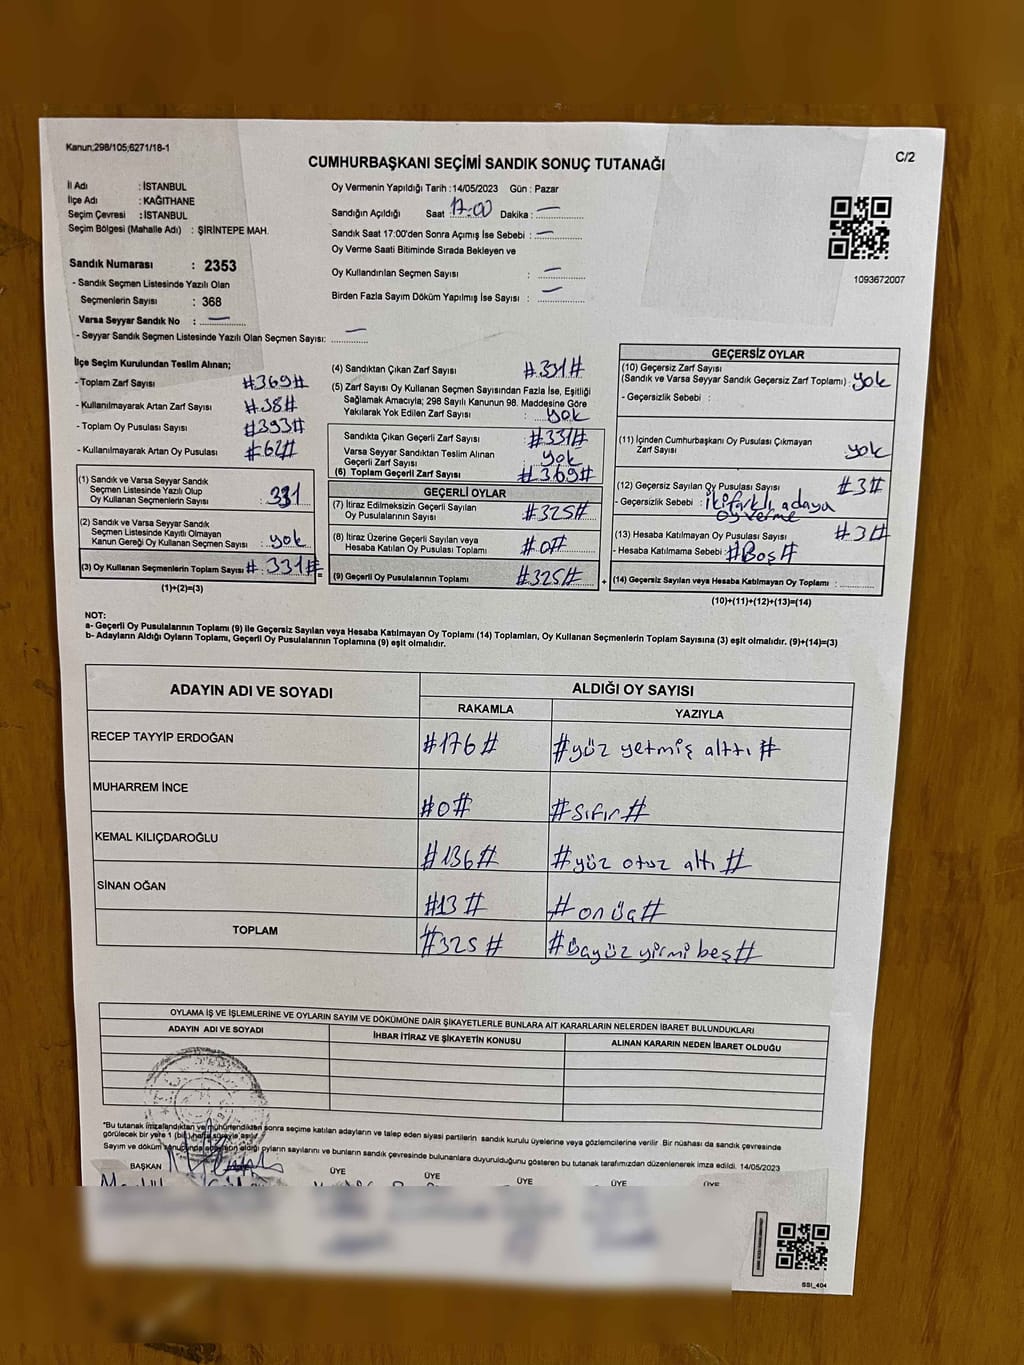 Kanun;298/105;6271/18-1
CUMHURBAŞKANI SEÇİMİ SANDIK SONUÇ TUTANAĞI
C/2
İl Adı : İSTANBUL
İlçe Adı : KAĞITHANE
Seçim Çevresi : İSTANBUL
Seçim Bölgesi (Mahalle Adı) : ŞİRİNTEPE MAH.
Sandık Numarası : 2353
- Sandık Seçmen Listesinde Yazılı Olan
Seçmenlerin Sayısı : 368
Varsa Seyyar Sandık No : —
- Seyyar Sandık Seçmen Listesinde Yazılı Olan Seçmen Sayısı: —
Oy Vermenin Yapıldığı Tarih : 14/05/2023 Gün : Pazar
Sandığın Açıldığı Saat : 17:00 Dakika : —
Sandık Saat 17:00'den Sonra Açımış İse Sebebi : —
Oy Verme Saati Bitiminde Sırada Bekleyen ve
Oy Kullandırılan Seçmen Sayısı : —
Birden Fazla Sayım Döküm Yapılmış İse Sayısı : —
1093672007
İlçe Seçim Kurulundan Teslim Alınan;
- Toplam Zarf Sayısı #369#
- Kullanılmayarak Artan Zarf Sayısı #38#
- Toplam Oy Pusulası Sayısı #393#
- Kullanılmayarak Artan Oy Pusulası #62#
(1) Sandık ve Varsa Seyyar Sandık
Seçmen Listesinde Yazılı Olup
Oy Kullanan Seçmenlerin Sayısı : 331
(2) Sandık ve Varsa Seyyar Sandık
Seçmen Listesinde Kayıtlı Olmayan
Kanun Gereği Oy Kullanan Seçmen Sayısı : yok
(3) Oy Kullanan Seçmenlerin Toplam Sayısı # : 331# =
(1)+(2)=(3)
(4) Sandıktan Çıkan Zarf Sayısı #331#
(5) Zarf Sayısı Oy Kullanan Seçmen Sayısından Fazla İse, Eşitliği
Sağlamak Amacıyla; 298 Sayılı Kanunun 98. Maddesine Göre
Yakılarak Yok Edilen Zarf Sayısı : yok
Sandıkta Çıkan Geçerli Zarf Sayısı #331#
Varsa Seyyar Sandıktan Teslim Alınan
Geçerli Zarf Sayısı yok
(6) Toplam Geçerli Zarf Sayısı #369#
GEÇERLİ OYLAR
(7) İtiraz Edilmeksizin Geçerli Sayılan
Oy Pusulalarının Sayısı #325#
(8) İtiraz Üzerine Geçerli Sayılan veya
Hesaba Katılan Oy Pusulası Toplamı #0#
(9) Geçerli Oy Pusulalarının Toplamı #325# +
GEÇERSİZ OYLAR
(10) Geçersiz Zarf Sayısı
(Sandık ve Varsa Seyyar Sandık Geçersiz Zarf Toplamı) : yok
- Geçersizlik Sebebi :
(11) İçinden Cumhurbaşkanı Oy Pusulası Çıkmayan
Zarf Sayısı yok
(12) Geçersiz Sayılan Oy Pusulası Sayısı #3#
- Geçersizlik Sebebi : iki farklı adaya
oy verme
(13) Hesaba Katılmayan Oy Pusulası Sayısı #3#
- Hesaba Katılmama Sebebi : #Boş#
(14) Geçersiz Sayılan veya Hesaba Katılmayan Oy Toplamı :
(10)+(11)+(12)+(13)=(14)
NOT:
a- Geçerli Oy Pusulalarının Toplamı (9) ile Geçersiz Sayılan veya Hesaba Katılmayan Oy Toplamı (14) Toplamları, Oy Kullanan Seçmenlerin Toplam Sayısına (3) eşit olmalıdır. (9)+(14)=(3)
b- Adayların Aldığı Oyların Toplamı, Geçerli Oy Pusulalarının Toplamına (9) eşit olmalıdır.
ADAYIN ADI VE SOYADI ALDIĞI OY SAYISI
RAKAMLA YAZIYLA
RECEP TAYYİP ERDOĞAN #176# #yüz yetmiş alttı#
MUHARREM İNCE #0# #sıfır#
KEMAL KILIÇDAROĞLU #136# #yüz otuz altı#
SİNAN OĞAN #13# #on üç#
TOPLAM #325# #üçyüz yirmi beş#
OYLAMA İŞ VE İŞLEMLERİNE VE OYLARIN SAYIM VE DÖKÜMÜNE DAİR ŞİKAYETLERLE BUNLARA AİT KARARLARIN NELERDEN İBARET BULUNDUKLARI
ADAYIN ADI VE SOYADI İHBAR İTİRAZ VE ŞİKAYETİN KONUSU ALINAN KARARIN NEDEN İBARET OLDUĞU
*Bu tutanak imzalandıktan ve mühürlendikten sonra seçime katılan adayların ve talep eden siyasi partilerin sandık kurulu üyelerine veya gözlemcilerine verilir. Bir nüshası da sandık çevresinde
görülecek bir yere 1 (bir) hafta süreyle asılır.
Sayım ve döküm sonucunda adayların aldığı oyların sayılarını ve bunların sandık çevresinde bulunanlara duyurulduğunu gösteren bu tutanak tarafımızdan düzenlenerek imza edildi. 14/05/2023
BAŞKAN ÜYE ÜYE ÜYE ÜYE ÜYE
SSI_404